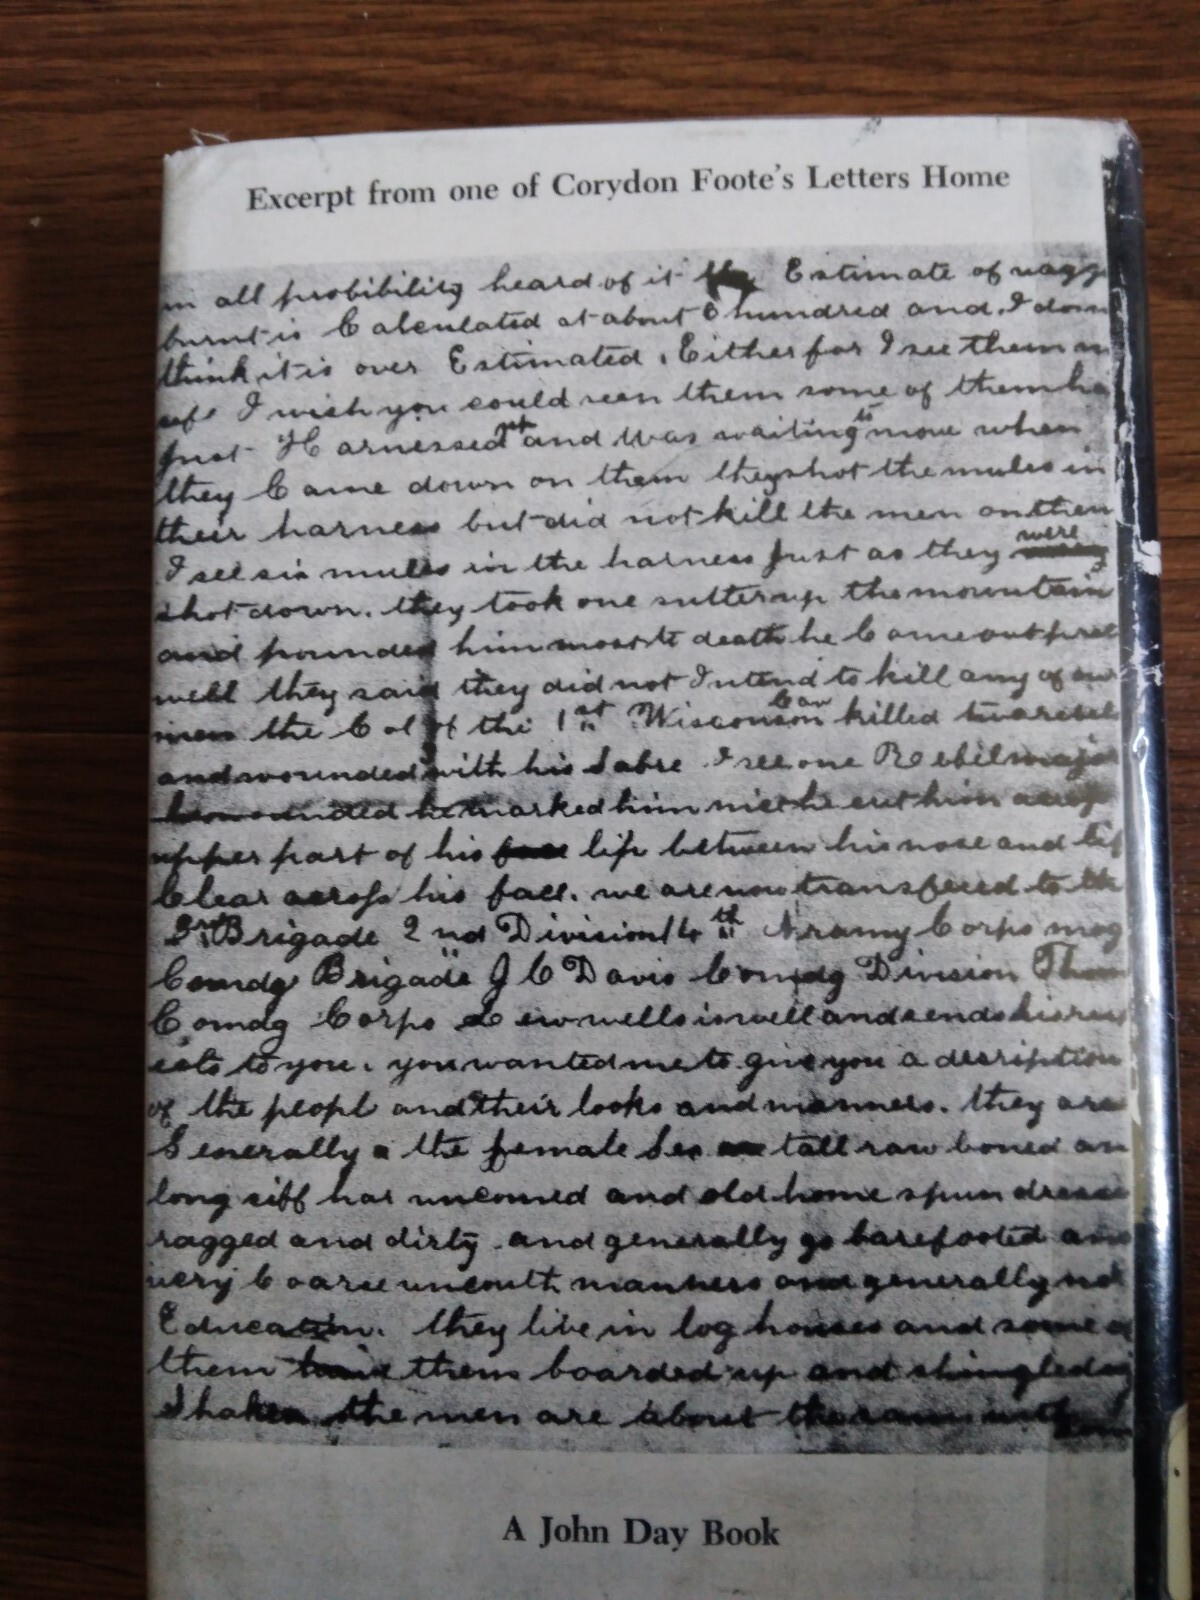 Excerpt from one of Corydon Foote's Letters Home
in all probibility heard of it Estimate of wagg
burnt is Calculated at about 8 hundred and I don
think it is over Estimated. Either for I see them
I wish you could seen them some of them ha
just Harnessed and was waiting to move when
they Came down on them they shot the mules in
their harness but did not kill the men on them
I see six mules in the harness Just as they were
shot down. they took one sutter up the mountain
and pounded him most to death he Came out pret
well they said they did not Intend to kill any of our
men the Col of the 1st Wisconson Cav killed
and wounded with his Sabre I see one Rebel major
he marked him nice he cut him
upper part of his lip between his nose and
Clear across his face. we are now transfered to the
Brigade 2nd Division 14th Armny Corps
Comdg Brigade J C Davis Comdg Division Thom
Comdg Corps Lew wells is well and sends his res
ects to you. you wanted me to give you a desription
of the peopl and their looks and manners. they are
Generally a the female Sex tall raw boned an
long siff har uncomed and old home spun dresses
ragged and dirty and generally go barefooted and
very Coarse uncouth manners and generally not
Education. they live in log houses and some o
them them boarded up and shingled
Shakes the men are about the same
A John Day Book